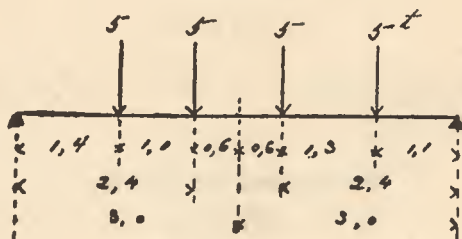 5 5 5 5 t
1,4 1,0 0,6 0,6 1,3 1,1
2,4 2,4
3,0 3,0